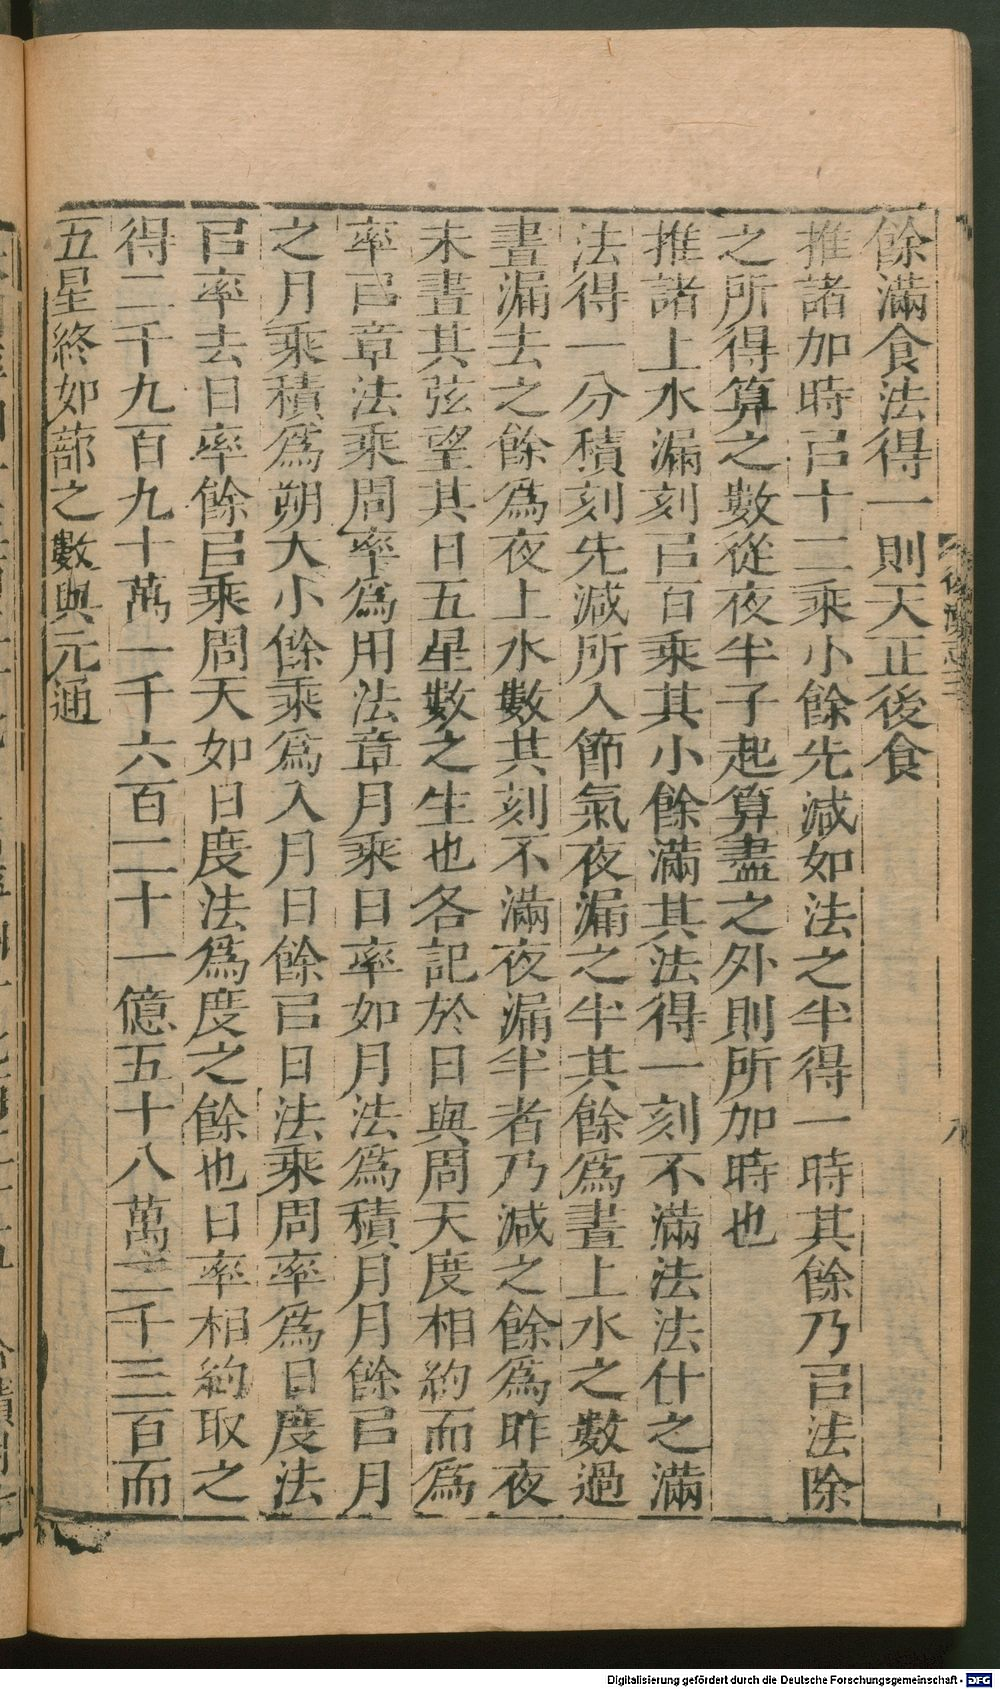 餘滿食法得一則天正後食
推諸加時㠯十二乘小餘先減如法之半得一時其餘乃㠯法除
之所得算之數從夜半子起算盡之外則所加時也
推諸上水漏刻㠯百乘其小餘滿其法得一刻不滿法法什之滿
法得一分積刻先減所入節氣夜漏之半其餘爲晝上水之數過
晝漏去之餘爲夜上水數其刻不滿夜漏半者乃減之餘爲昨夜
未晝其弦望其日五星數之生也各記於日與周天度相約而爲
率㠯章法乘周率爲用法章月乘日率如月法爲積月月餘㠯月
之月乘積爲朔大小餘乘爲入月日餘㠯日法乘周率爲日度法
㠯率去日率餘㠯乘周天如日度法爲度之餘也日率相約取之
得二千九百九十萬一千六百二十一億五十八萬二千三百而
五星終如蔀之數與元通
八
Digitalisierung gefördert durch die Deutsche Forschungsgemeinschaft - DFG